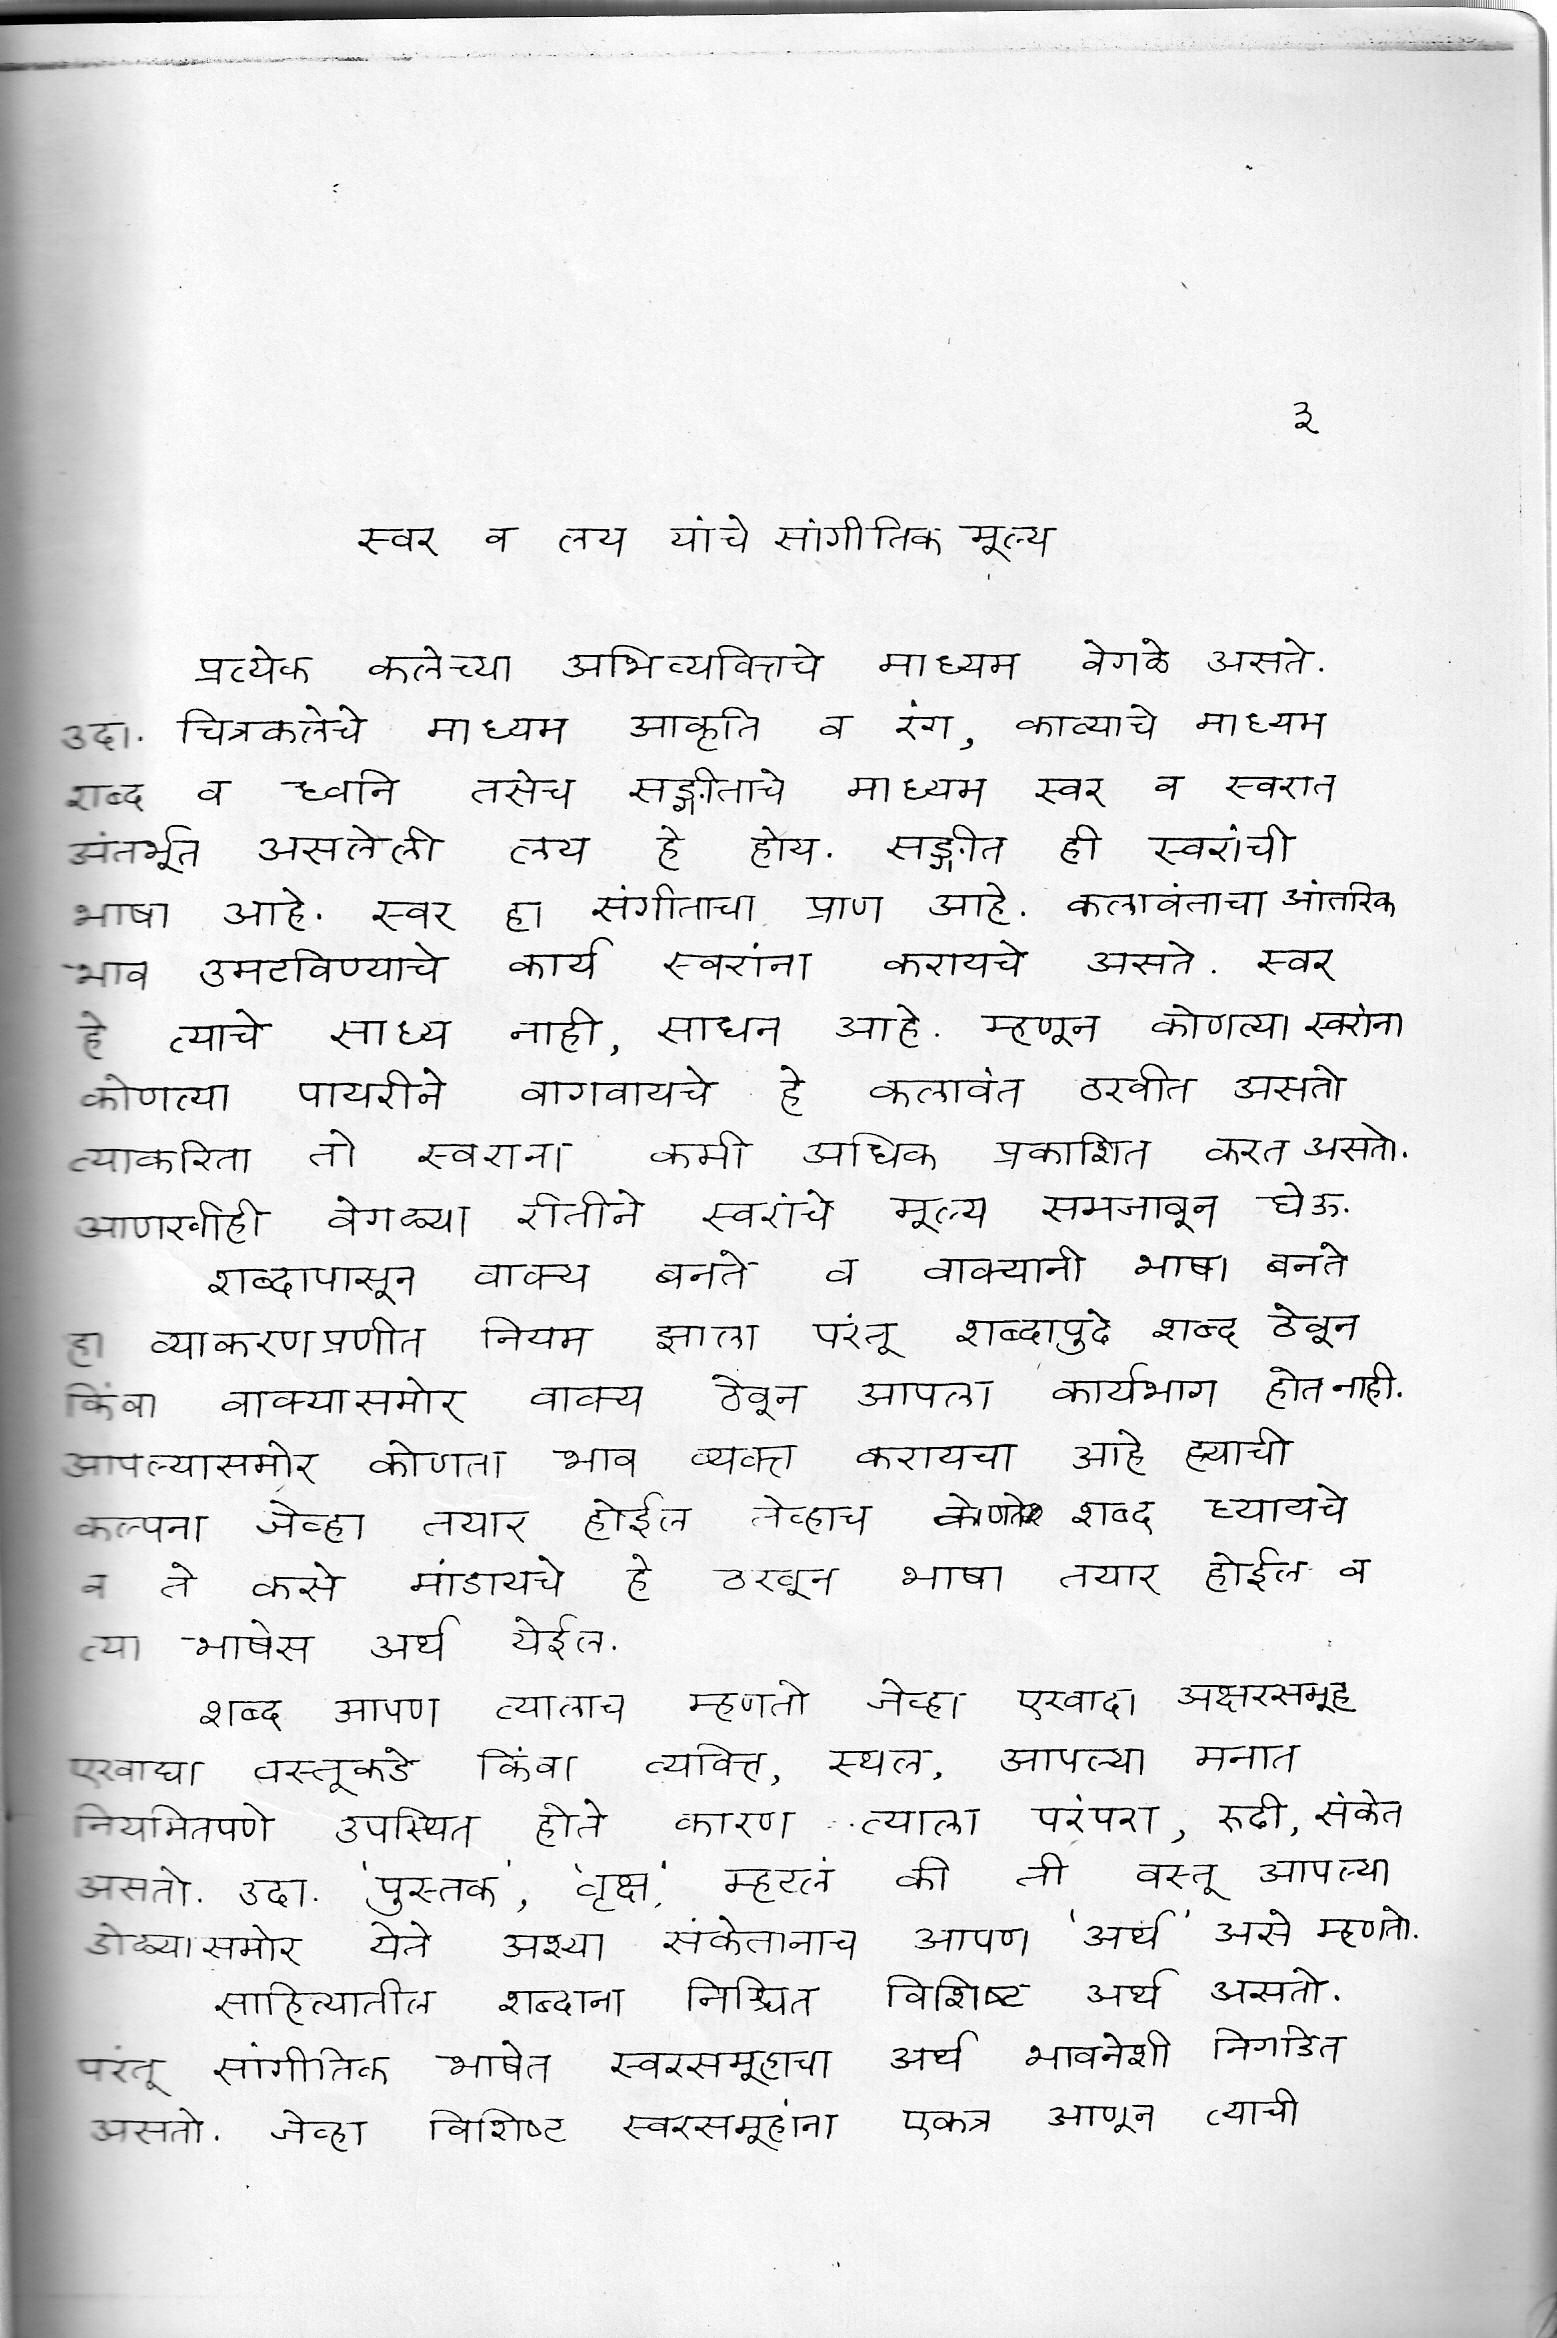 ३
स्वर व लय यांचे सांगीतिक मूल्य
प्रत्येक कलेच्या अभिव्यक्तिचे माध्यम वेगळे असते.
उदा. चित्रकलेचे माध्यम आकृति व रंग, काव्याचे माध्यम
शब्द व ध्वनि तसेच सङ्गीताचे माध्यम स्वर व स्वरात
अंतर्भूत असलेली लय हे होय. सङ्गीत ही स्वरांची
भाषा आहे. स्वर हा संगीताचा प्राण आहे. कलावंताचा आंतरिक
भाव उमटविण्याचे कार्य स्वरांना करायचे असते. स्वर
हे त्याचे साध्य नाही, साधन आहे. म्हणून कोणत्या स्वरांना
कोणत्या पायरीने वागवायचे हे कलावंत ठरवीत असतो
त्याकरिता तो स्वराना कमी अधिक प्रकाशित करत असतो.
आणखीही वेगळ्या रीतीने स्वरांचे मूल्य समजावून घेऊ.
शब्दापासून वाक्य बनते व वाक्यानी भाषा बनते
हा व्याकरणप्रणीत नियम झाला परंतू शब्दापुढे शब्द ठेवून
किंवा वाक्यासमोर वाक्य ठेवून आपला कार्यभाग होत नाही.
आपल्यासमोर कोणता भाव व्यक्त करायचा आहे ह्याची
कल्पना जेव्हा तयार होईल तेव्हाच शब्द घ्यायचे
व ते कसे मांडायचे हे ठरवून भाषा तयार होईल व
त्या भाषेस अर्थ येईल.
शब्द आपण त्यालाच म्हणतो जेव्हा एखादा अक्षरसमूह
एखाद्या वस्तूकडे किंवा व्यक्ति, स्थल, आपल्या मनात
नियमितपणे उपस्थित होते कारण त्याला परंपरा, रूढी, संकेत
असतो. उदा. 'पुस्तक', 'वृक्ष', म्हटलं की ती वस्तू आपल्या
डोळ्यासमोर येते अश्या संकेतानाच आपण 'अर्थ' असे म्हणतो.
साहित्यातील शब्दाना निश्चित विशिष्ट अर्थ असतो.
परंतू सांगीतिक भाषेत स्वरसमूहाचा अर्थ भावनेशी निगडित
असतो. जेव्हा विशिष्ट स्वरसमूहांना एकत्र आणून त्याची